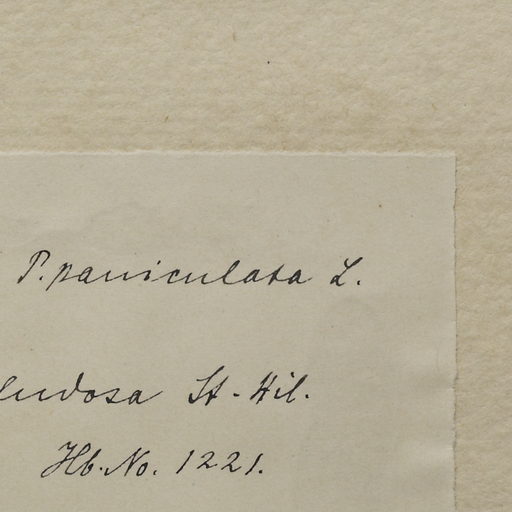 P. paniculata L.
ludosa St-Hil.
Hb. No. 1221.